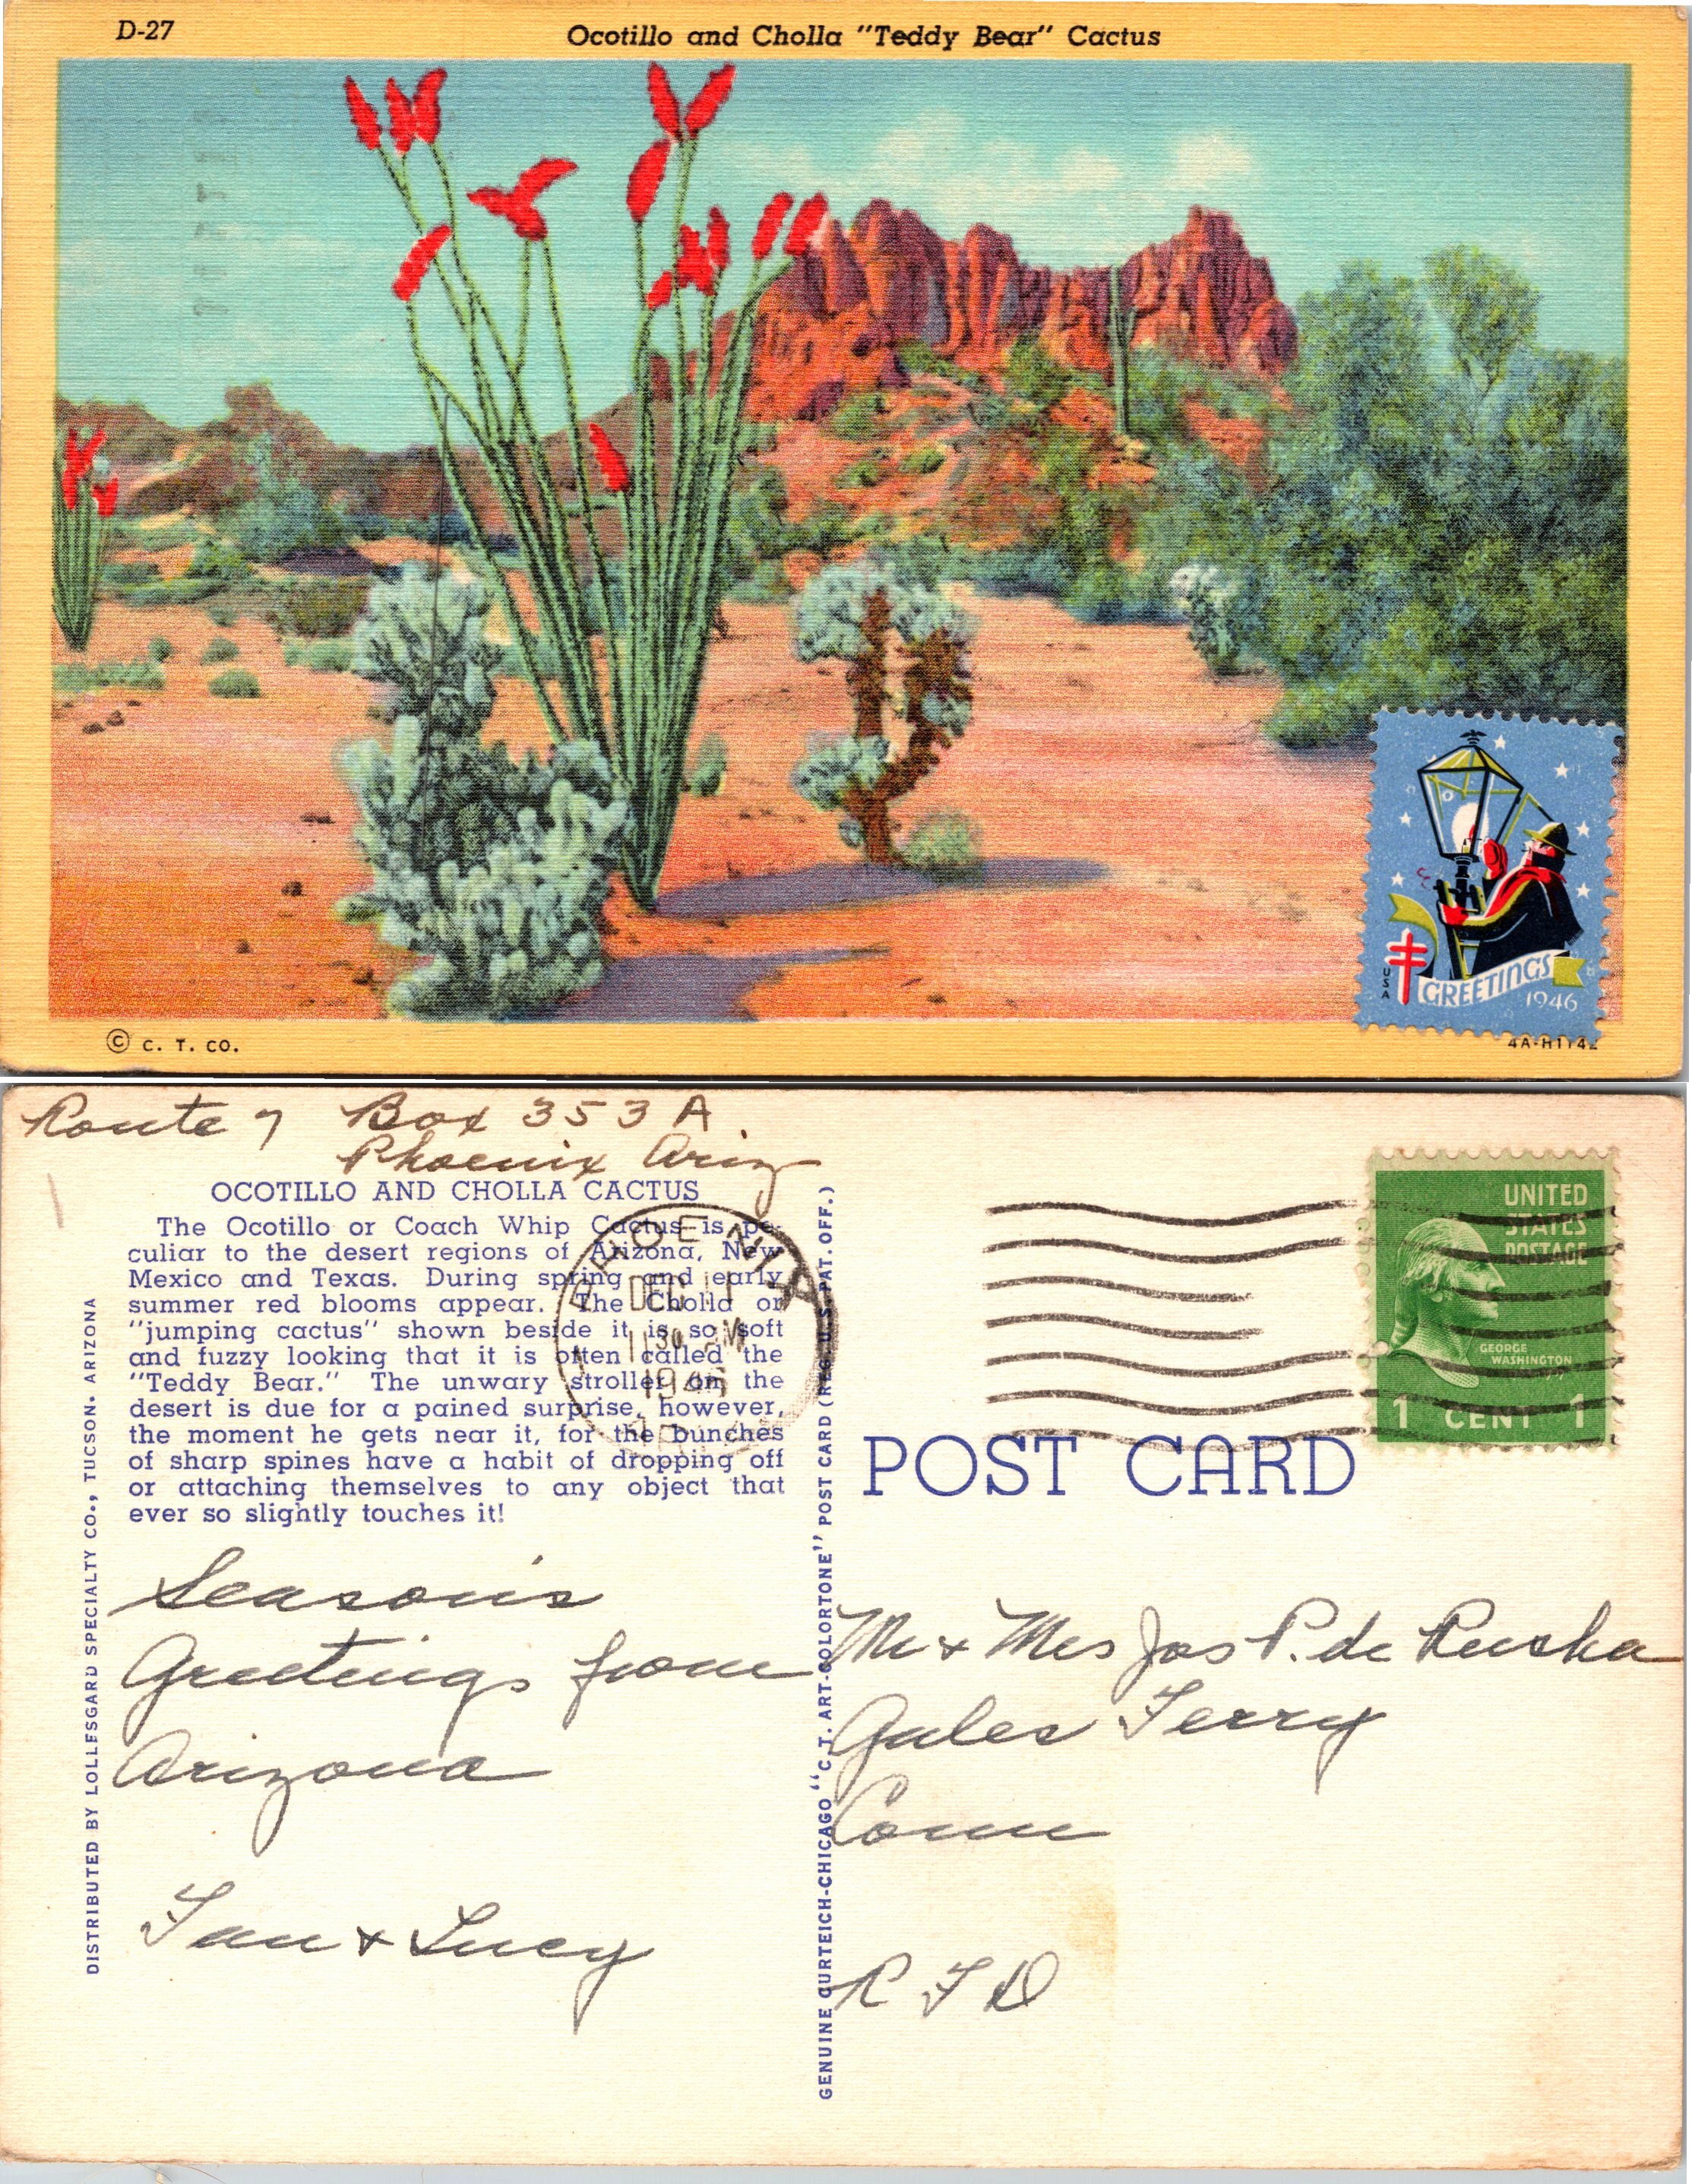 D-27
Ocotillo and Cholla "Teddy Bear" Cactus
USA
GREETINGS
1946
© C. T. CO.
4A-H1142
Route 7 Box 353 A.
Phoenix Ariz
OCOTILLO AND CHOLLA CACTUS
The Ocotillo or Coach Whip Cactus is pe-
culiar to the desert regions of Arizona, New
Mexico and Texas. During spring and early
summer red blooms appear. The Cholla or
"jumping cactus" shown beside it is so soft
and fuzzy looking that it is often called the
"Teddy Bear." The unwary stroller on the
desert is due for a pained surprise, however,
the moment he gets near it, for the bunches
of sharp spines have a habit of dropping off
or attaching themselves to any object that
ever so slightly touches it!
PHOENIX
DEC 11
11 30 AM
1946
DISTRIBUTED BY LOLLESGARD SPECIALTY CO., TUCSON, ARIZONA
GENUINE CURTEICH-CHICAGO "C.T. ART-COLORTONE" POST CARD (REG. U.S. PAT. OFF.)
UNITED
STATES
POSTAGE
GEORGE
WASHINGTON
1 CENT 1
POST CARD
Season's
Greetings from
Arizona
Fan & Lucy
Mr & Mrs Jos P. de
Gales Ferry
Conn
R F D